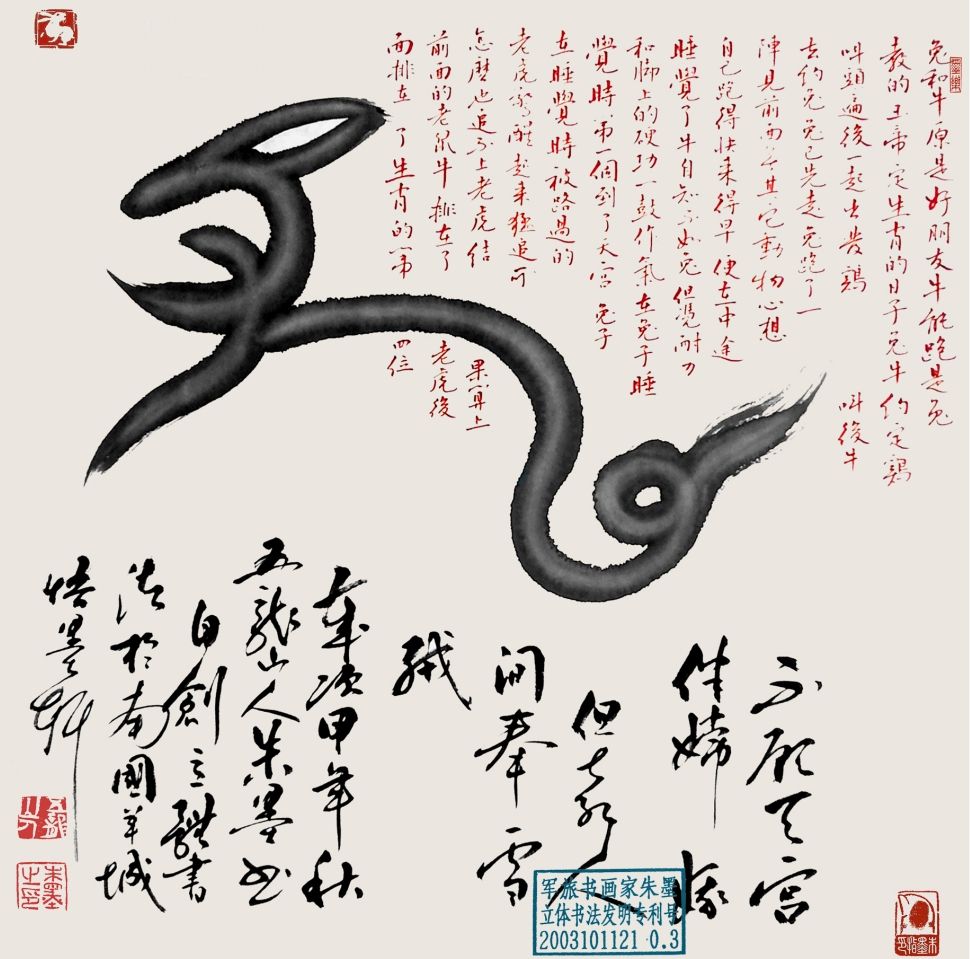 兔和牛原是好朋友牛能跑是兔
教的玉帝定生肖的日子兔牛约定鷄
叫頭遍後一起出發鷄 叫後牛
去约兔兔已先走兔跑了一
陣見前面無其它動物心想
自己跑得快来得早便在中途
睡覺了牛自知不如兔但凭耐力
和脚上的硬功一鼓作氣在兔子睡
覺時第一個到了天宫兔子
在睡覺時被路過的
老虎驚醒起来猛追可
怎麽也追不上老虎结 果算上
前面的老鼠牛排在了 老虎後
面排在 了生肖的第 四位
不愿天宫
伴嫦娥
但 人
间奉雪
絨
歲次甲年秋
五龍山人朱墨书
自創立體書
法於南國羊城
悟墨軒
朱墨之印
军旅书画家朱墨
立体书法发明专利号
2003101121 0.3